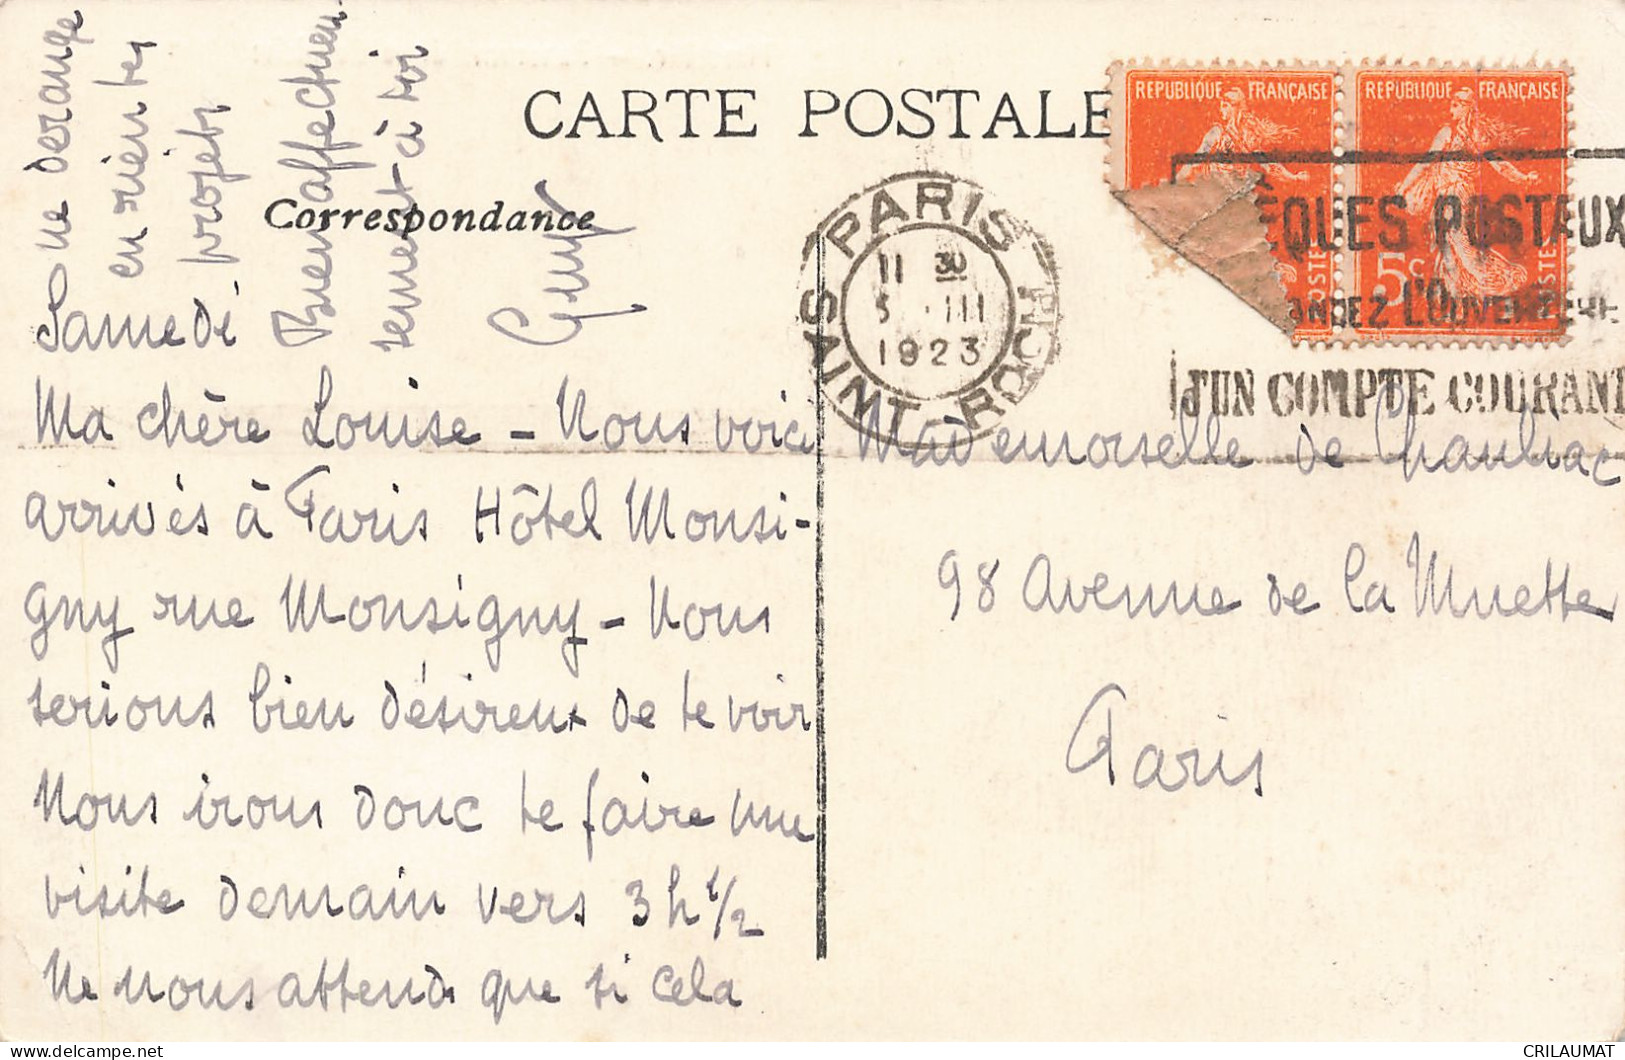 CARTE POSTALE
Correspondance
REPUBLIQUE FRANÇAISE
REPUBLIQUE FRANÇAISE
POSTES
5c POSTES
PARIS
SAINT ROCH
11 30
3 · III
1923
QUES POSTAUX
ANDEZ L'OUVERTURE
D'UN COMPTE COURANT
Samedi
Ma chère Louise – Nous voici
arrivés à Paris Hôtel Monsi-
gny rue Monsigny – Nous
serions bien désireux de te voir
Nous irons donc te faire une
visite demain vers 3 h 1/2
Ne nous attends que si cela
ne dérange
en rien tes
projets
Bien affectueu
sement à toi
Mademoiselle de Chauliac
98 Avenue de La Muette
Paris
CRILAUMAT